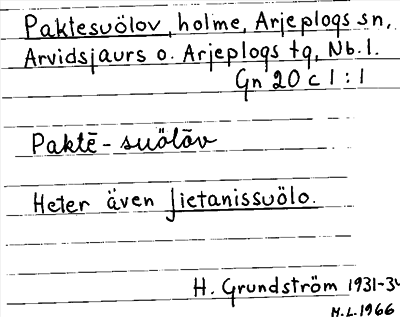 Paktesuölov, holme, Arjeplogs sn,
Arvidsjaurs o. Arjeplogs tg, Nb. l.
Gn 20 c 1 : 1
Paktē - suölōv
Heter även Jietanissuölo.
H. Grundström 1931-34
H.L. 1966